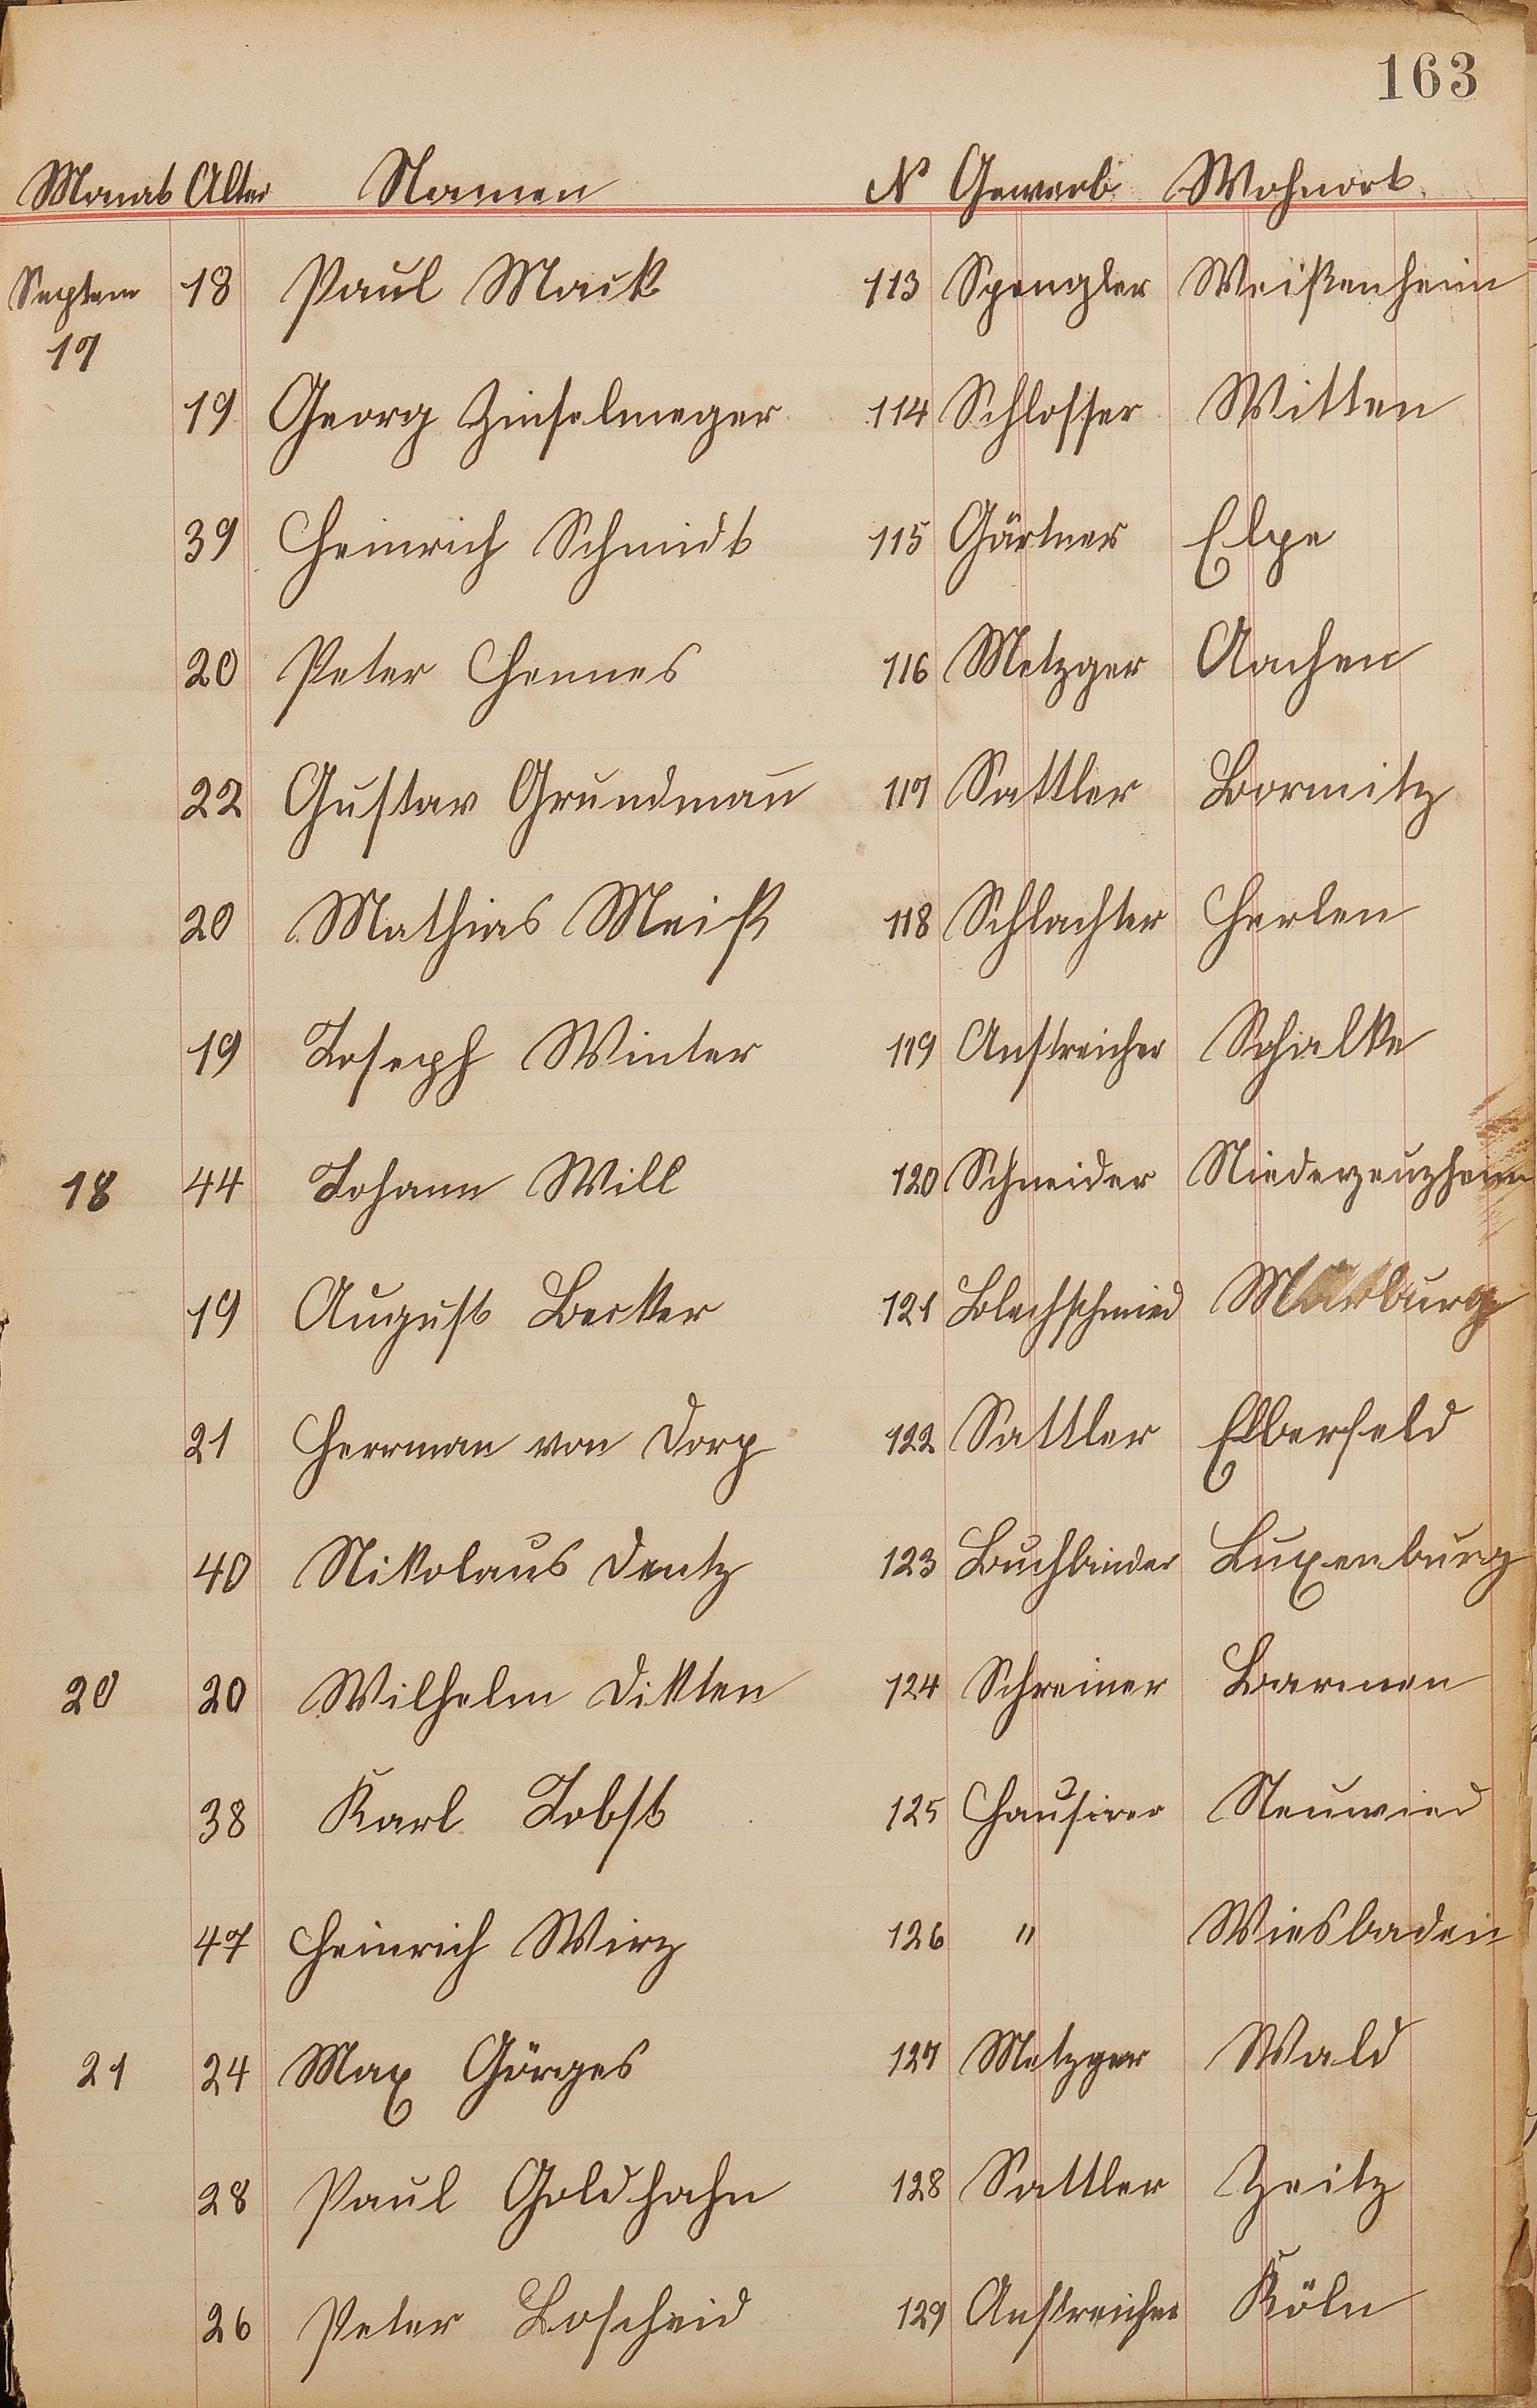 163
Monat Alter Namen N Gewerb Wohnort
Septem 18 Paul Mack 113 Spengler Weißenheim
17
19 Georg Zinselmeger 114 Schlosser Witten
39 Heinrich Schmidt 115 Gärtner Elpe
20 Peter Hennes 116 Metzger Aachen
22 Gustav Grundmann̄ 117 Sattler Bormitz
20 Mathias Meiß 118 Schlachter Herlen
19 Joseph Winter 119 Anstreicher Schalke
18 44 Johann Will 120 Schneider Niederzeuzheim
19 August Becker 121 Blechschmied Marburg
21 Herrman von Dorp 122 Sattler Elberfeld
40 Nikolaus Dentz 123 Buchbinder Luxenburg
20 20 Wilhelm Dikten 124 Schreiner Barmen
38 Karl Jobst 125 Hausirer Neuwied
47 Heinrich Wirz 126 " Wiesbaden
21 24 Max Görges 127 Metzger Wald
28 Paul Goldhahn 128 Sattler Zeitz
26 Peter Boscheid 129 Anstreicher Köln